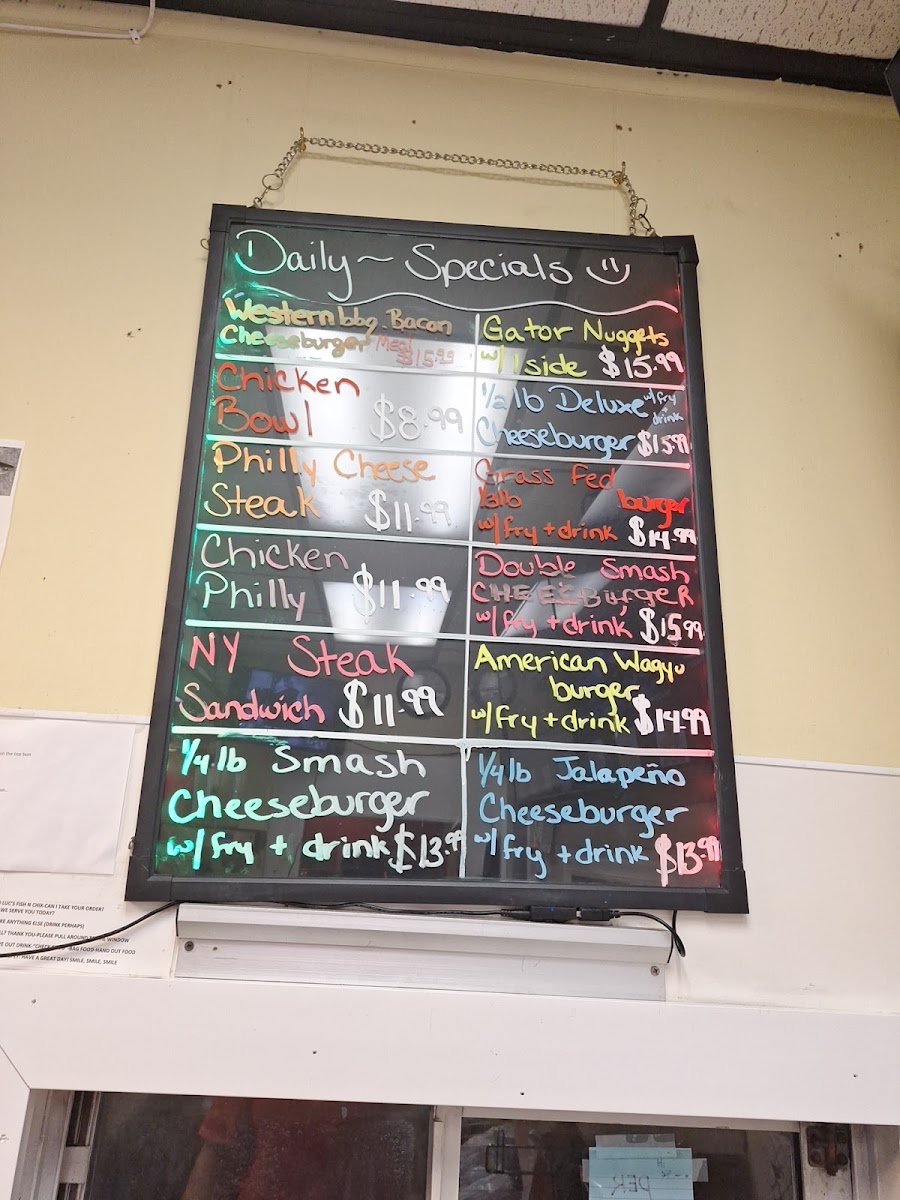 Daily ~ Specials
Western bbq Bacon
Cheeseburger Meal
$15.99
Chicken
Bowl $8.99
Philly Cheese
Steak $11.99
Chicken
Philly $11.99
NY Steak
Sandwich $11.99
1/4 lb Smash
Cheeseburger
w/ fry + drink $13.99
Gator Nuggets
w/ 1 side $15.99
1/2 lb Deluxe w/ fry
+ drink
Cheeseburger $15.99
Grass Fed
1/3 lb burger
w/ fry + drink $14.99
Double Smash
CHEESEBURGER
w/ fry + drink $15.99
American Wagyu
burger
w/ fry + drink $14.99
1/4 lb Jalapeño
Cheeseburger
w/ fry + drink $13.99
the top bun
LUC'S FISH N CHIX-CAN I TAKE YOUR ORDER?
WE SERVE YOU TODAY?
ANYTHING ELSE (DRINK PERHAPS)
THANK YOU-PLEASE PULL AROUND WINDOW
OUT DRINK BAG FOOD-HAND OUT FOOD
HAVE A GREAT DAY! SMILE, SMILE, SMILE